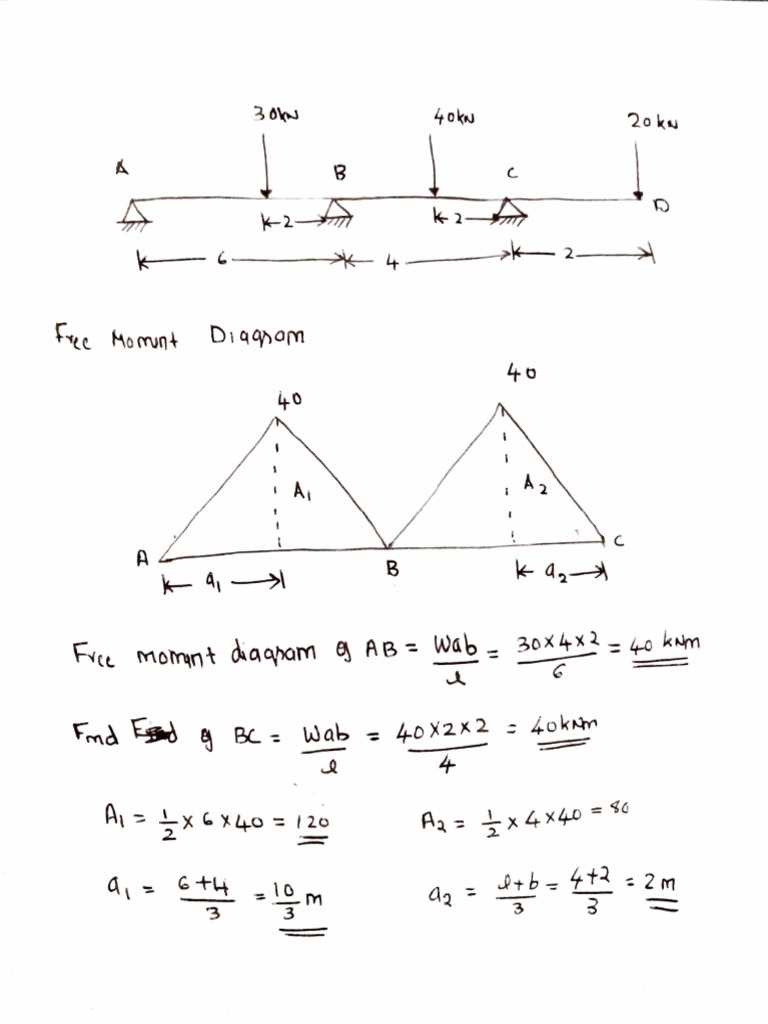 30kN 40kN 20kN
A B C D
2 2
6 4 2
Free Momunt Diagram
40 40
A1 A2
A B C
a1 a2
Free momunt diagram of AB = Wab/l = 30×4×2/6 = 40 kNm
Fmd of BC = Wab/l = 40×2×2/4 = 40kNm
A1 = 1/2 × 6 × 40 = 120 A2 = 1/2 × 4×40 = 80
a1 = 6+4/3 = 10/3 m a2 = l+b/3 = 4+2/3 = 2m